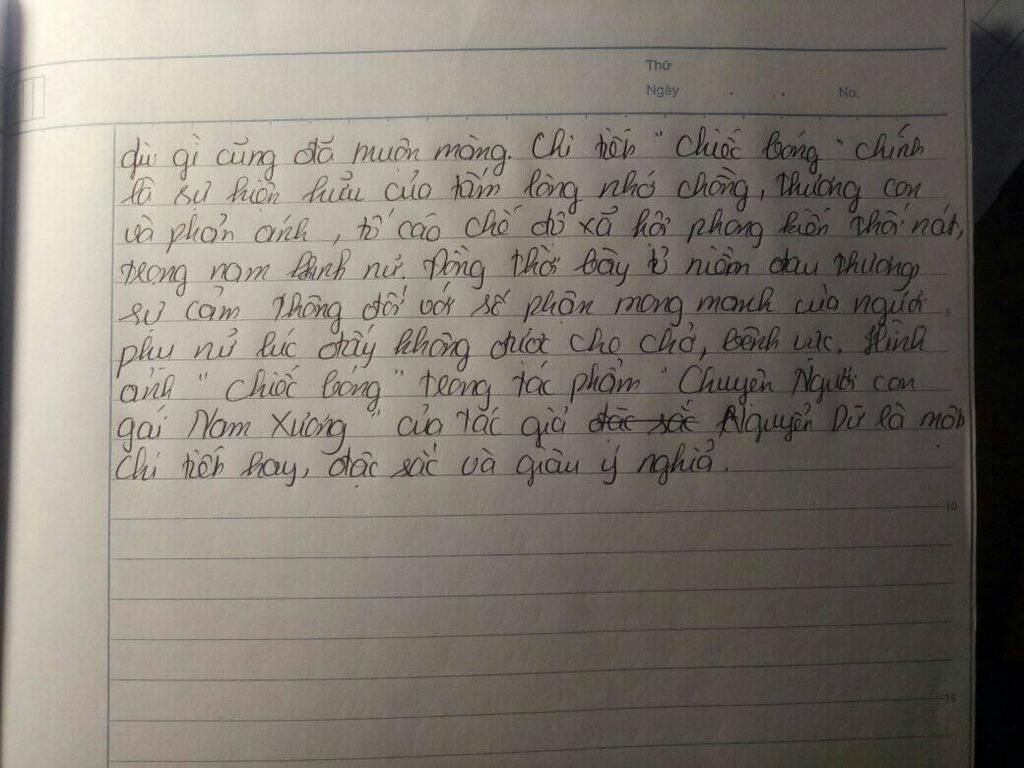 Thứ
Ngày . . No.
dù gì cũng đã muộn màng. Chi tiết "chiếc bóng" chính
là sự hiện hữu của tấm lòng nhớ chồng, thương con
và phản ánh, tố cáo chế độ xã hội phong kiến thối nát,
trọng nam khinh nữ. Đồng thời bày tỏ niềm đau thương,
sự cảm thông đối với số phận mong manh của người
5
phụ nữ lúc đấy không được che chở, bênh vực. Hình
ảnh "chiếc bóng" trong tác phẩm "Chuyện Người con
gái Nam Xương" của tác giả đặc sắc Nguyễn Dữ là một
chi tiết hay, đặc sắc và giàu ý nghĩa.
10
15